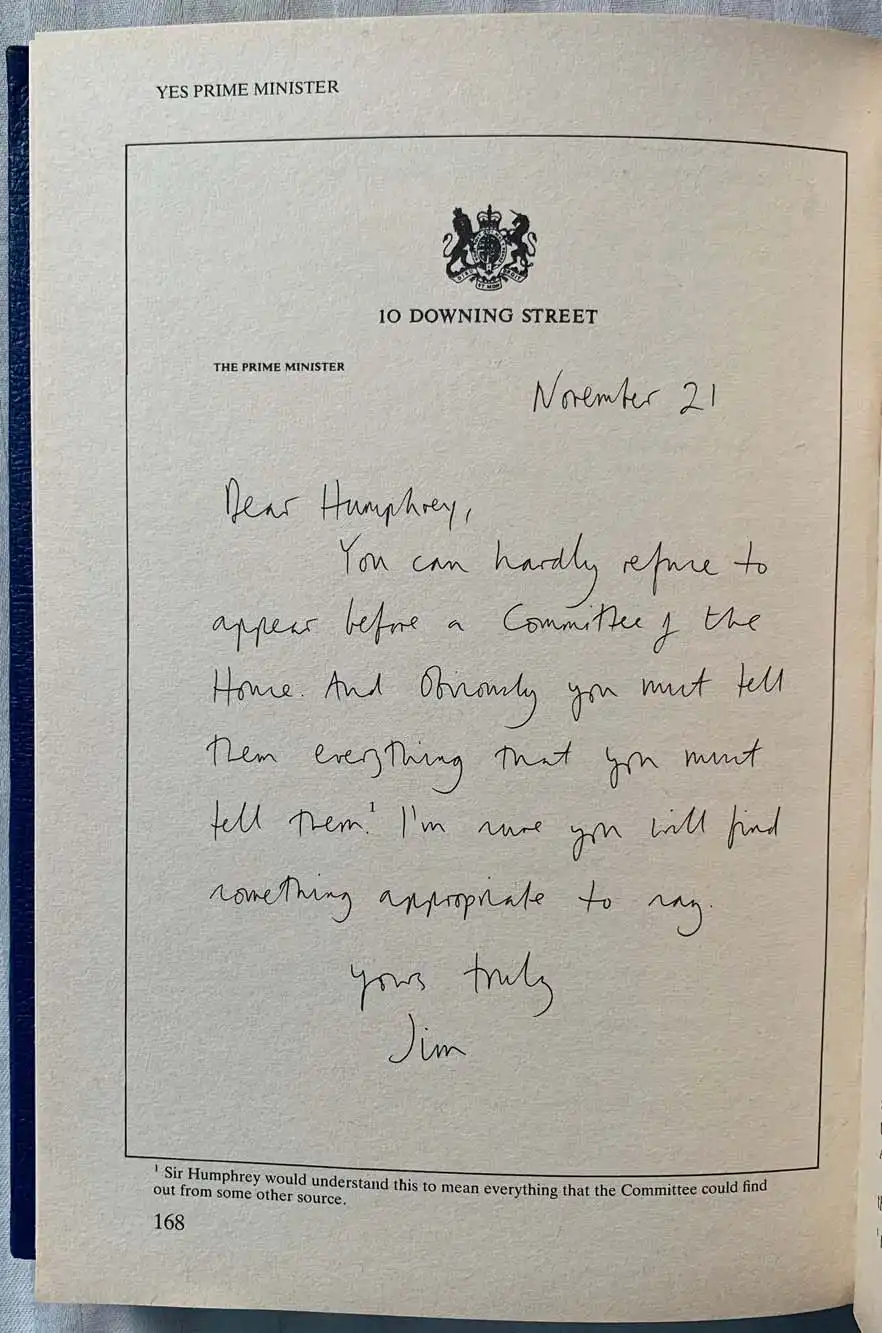 YES PRIME MINISTER
10 DOWNING STREET
THE PRIME MINISTER
November 21
Dear Humphrey,
You can hardly refuse to
appear before a Committee of the
House. And Obviously you must tell
them everything that you must
tell them.¹ I'm sure you will find
something appropriate to say.
Yours truly
Jim
¹ Sir Humphrey would understand this to mean everything that the Committee could find
out from some other source.
168